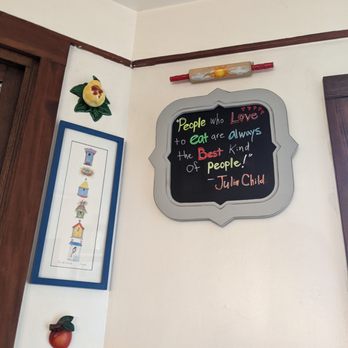 "People who Love
to eat are always
the Best kind
of people!"
- Julia Child